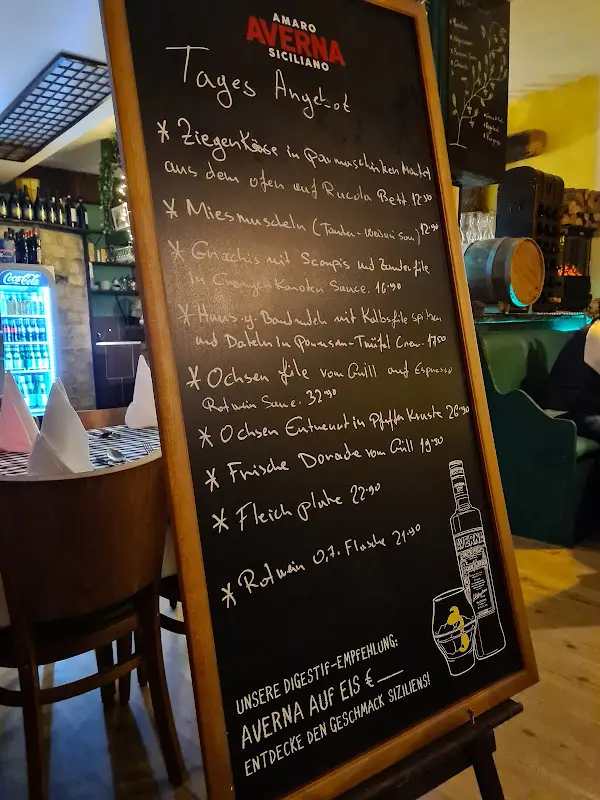 AMARO
AVERNA
SICILIANO
Tages Angebot
* Ziegenkäse in parmaschinken Mantel
aus dem ofen auf Rucola Bett. 12.90
* Miesmuscheln (Tomaten-Weißwein Sauce) 12.90
* Gnochis mit Scampis und Zanderfile
in Orangen Karoten Sauce. 16.90
* Haus g. Bandnudeln mit Kalbsfile spitzen
und Dateln in Parmesan-Trüfel Creme. 17.50
* Ochsen file vom Grill auf Espresso
Rotwein Sauce. 32.90
* Ochsen Entrecot in Pfeffer Kruste 26.90
* Frische Dorade vom Grill 19.90
* Fleich plate 22.90
* Rotwein 0,7. Flasche 21.90
AVERNA
UNSERE DIGESTIF-EMPFEHLUNG:
AVERNA AUF EIS €
ENTDECKE DEN GESCHMACK SIZILIENS!
Coca-Cola